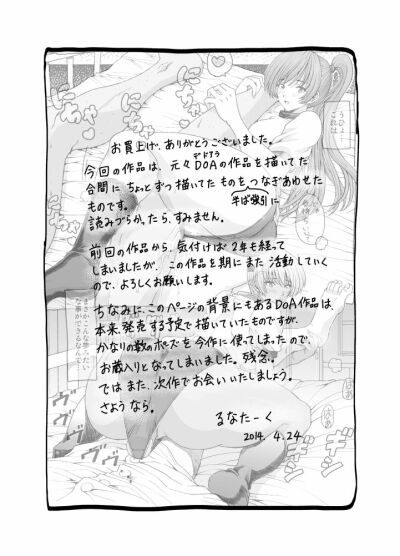 お買上げ、ありがとうございました。
今回の作品は、元々DOAの作品を描いてた
合間に ちょっとずつ描いてたものをつなぎあわせた
半ば強引に
ものです。
読みづらかったら、すみません。
前回の作品から、気付けば2年も経って
しまいましたが、この作品を期にまた活動していく
ので、よろしくお願いします。
ちなみに、このページの背景にもあるDOA作品は、
本来、発売する予定で描いていたものですが、
かなりの数のポーズを今作に使ってしまったので、
お蔵入りとなってしまいました。残念。
ではまた、次作でお会いいたしましょう。
さようなら。
るなたーく
2014. 4.24
うひょ
これは
にちゃ
にちゃ
にちゃ
まさかこんな夢みたい
な事ができるなんて
はぁ
はぁ
ギシ
ギシ